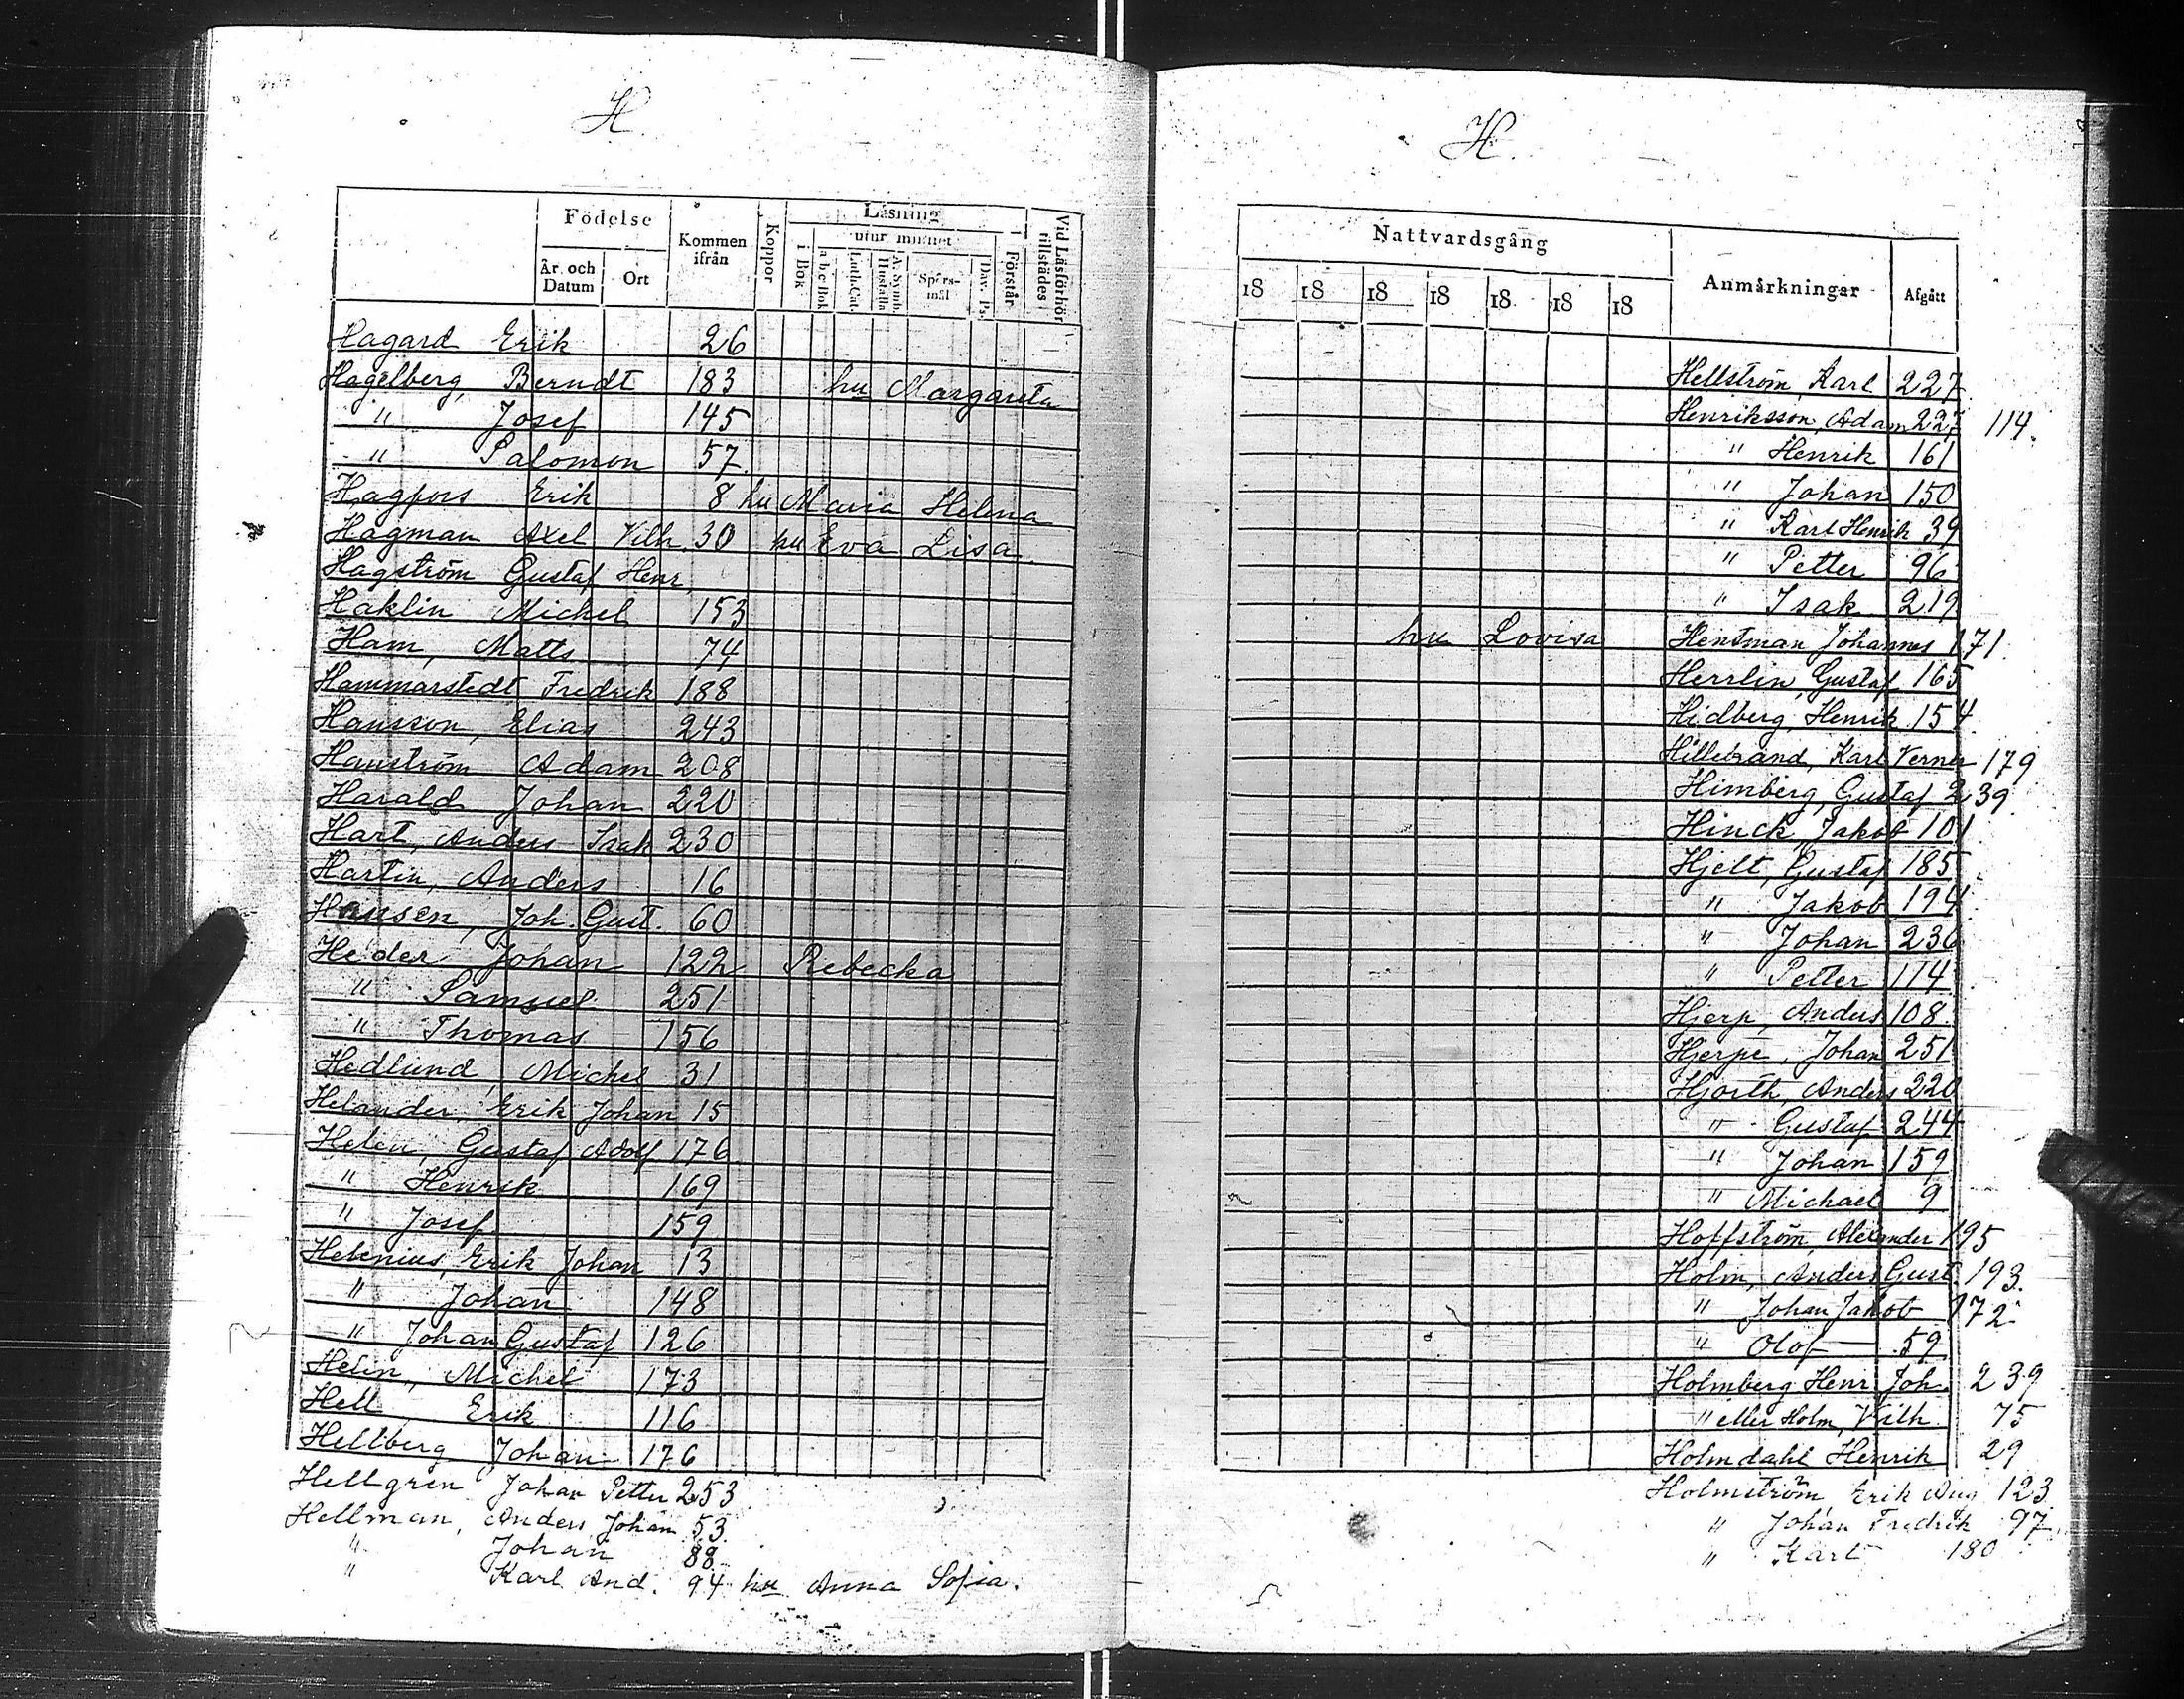 H.
Födelse
Kommen ifrån
Koppor
Läsning
utur minnet
i Bok
a b c Bok
Luth. Cat.
Hustafla
A. Symb.
Spörs-mål
Dav. Ps.
Förstår
Vid Läsförhör tillstädes
År och Datum
Ort
Hagard Erik 26
Hagelberg, Berndt 183 hu Margareta
" Josef 145
" Salomon 57
Hagfors Erik 8 hu Maria Helena
Hagman Axel Vilh. 30 hu Eva Lisa
Hagström Gustaf Henr.
Haklin Mickel 153
Ham, Matts 74
Hammarstedt, Fredrik 188
Hansson, Elias 243
Hanström Adam 208
Harald Johan 220
Hart, Anders Isak 230
Hartin, Anders 16
Hausen, Joh. Gust. 60
Heder Johan 122 Rebecka
" Samuel 251
" Thomas 156
Hedlund, Michel 31
Helander, Erik Johan 15
Helen, Gustaf Adolf 176
" Henrik 169
" Josef 159
Helenius, Erik Johan 13
" Johan 148
" Johan Gustaf 126
Helin, Michel 173
Hell Erik 116
Hellberg Johan 176
Hellgren Johan Petter 253
Hellman, Anders Johan 53
" Johan 88
" Karl And. 94 hu Anna Sofia.
H.
Nattvardsgång
Anmärkningar
Afgått
18 18 18 18 18 18 18
Hellström, Karl 227
Henriksson, Adam 227 114.
" Henrik 161
" Johan 150
" Karl Henrik 39
" Petter 96
" Isak 219
hu Lovisa Hentman Johannes 171.
Herrlin, Gustaf 165
Hidberg, Henrik 154
Hillebrand, Karl Verner 179
Himberg, Gustaf 239
Hinck, Jakob 101
Hjelt, Gustaf 185
" Jakob 194
" Johan 236
" Petter 114
Hjerp, Anders 108
Hjerpe, Johan 251
Hjorth, Anders 220
" Gustaf 244
" Johan 159
" Michael 9
Hoffström, Alexander 195
Holm, Anders Gust. 193.
" Johan Jakob 172
" Olof 59
Holmberg Henr. Joh. 239
" eller Holm, Vilh. 75
Holmdahl Henrik 29
Holmström, Erik Aug 123
" Johan Fredrik 97
" Karl 180